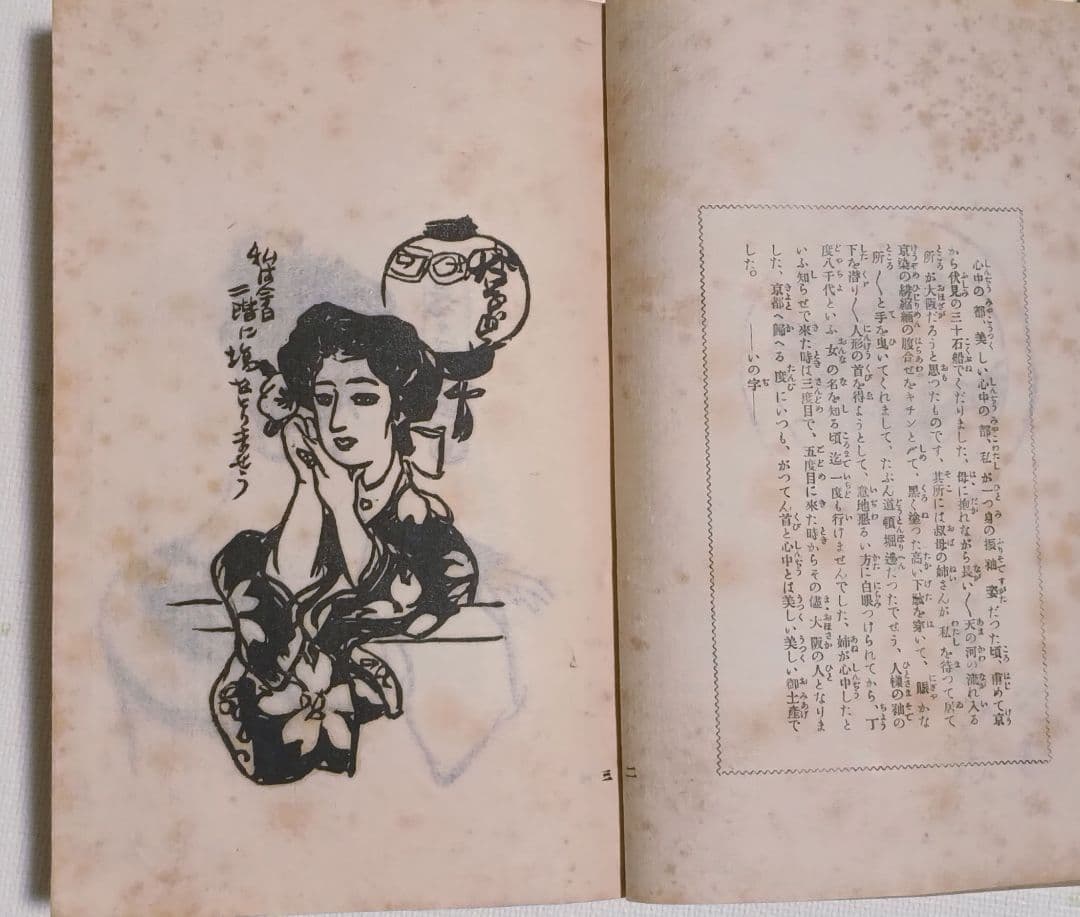 心中の都、美しい心中の都、私が一つ身の振袖姿だつた頃、甫めて京
から伏見の三十石船でくだりました、母に抱れながら長い〱天の河の流れ入る
所が大阪だろうと思つたものです、其所には叔母の姉さんが私を待つて居て
京染の緋縮緬の腹合せをキチンと〆て、黒く塗つた高い下駄を穿いて、賑かな
所〱と手を曳いてくれまして、たぶん道頓堀邊だつたでせう、人樣の袖の
下を潜り〱人形の首を得ようとして、意地惡るい方に白眼つけられてから、丁
度八千代といふ女の名を知る頃迄一度も行けませんでした、姉が心中したと
いふ知らせで來た時は三度目で、五度目に來た時からその儘大阪の人となりま
した、京都へ歸へる度にいつも、がつてん首と心中とは美しい美しい御土產で
した。　——いの字——
二
私は
二階に塲せとりませう
三